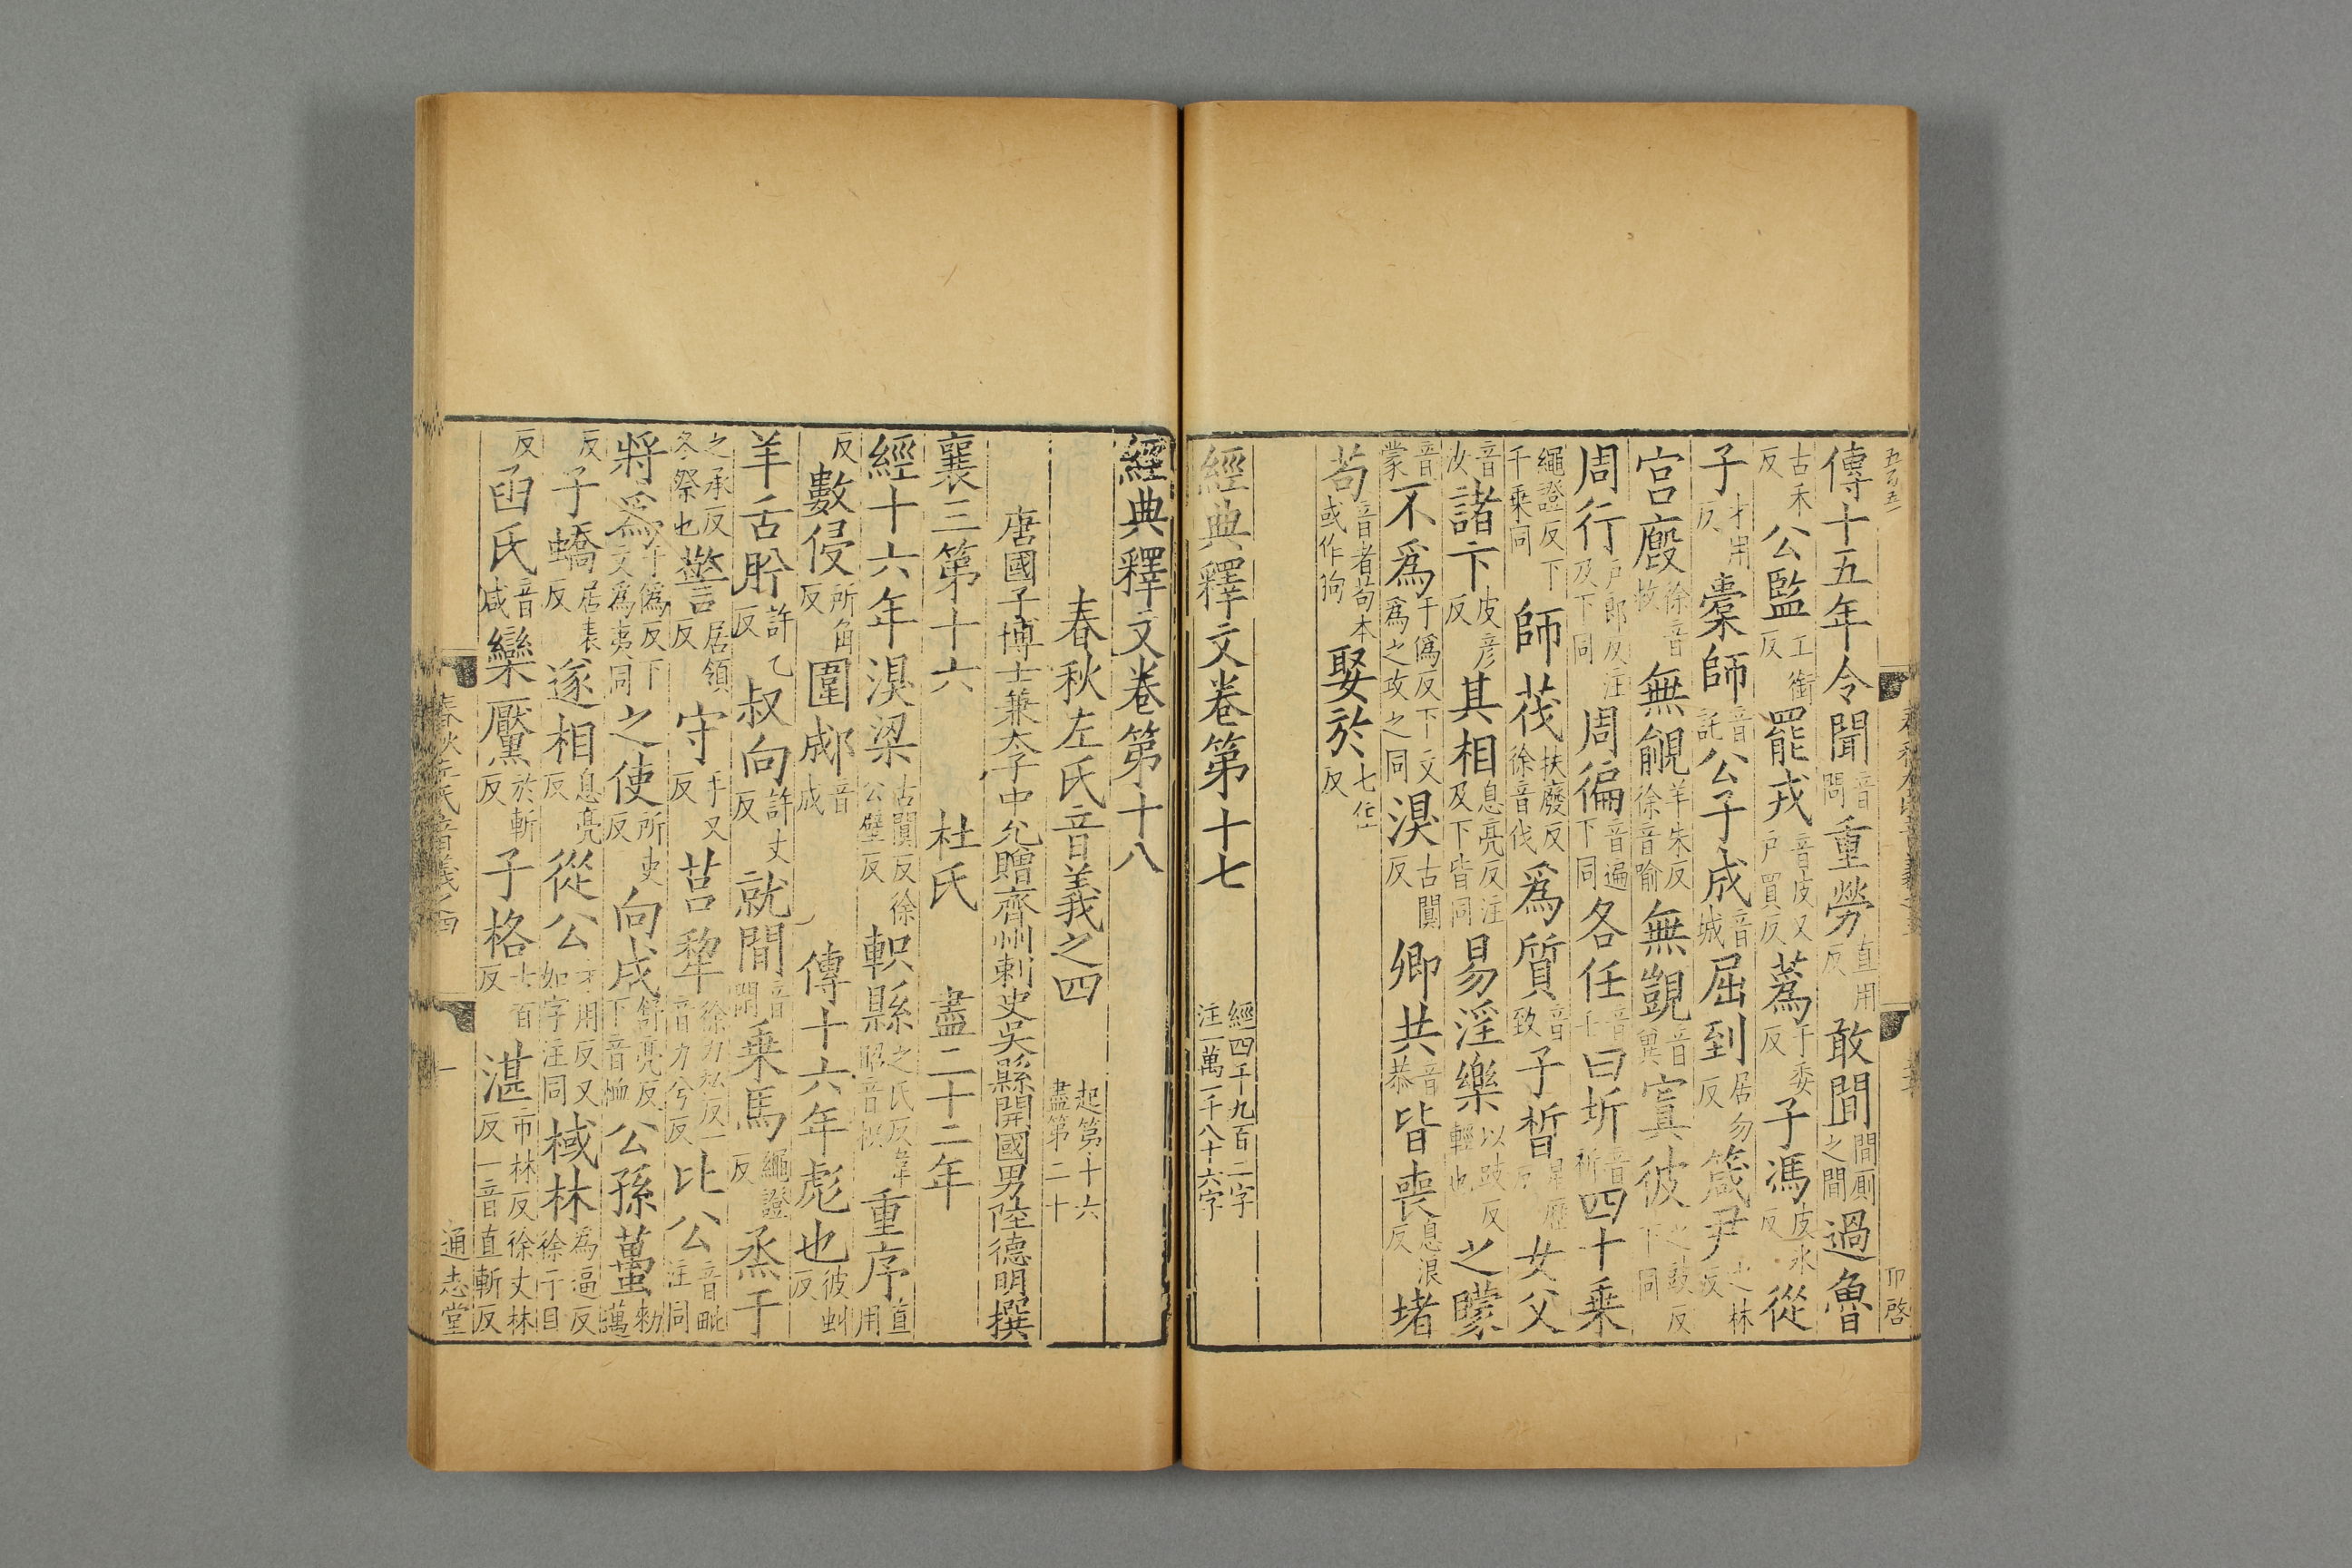 傳十五年令聞音問重勞直用反敢間間厠之間過魯
古禾反公監工銜反罷戎音皮又戶買反蒍于委反子馮皮冰反從
子才用反橐師音託公子成音城屈到居勿反箴尹之林反
宮廄徐音救無覦羊朱反徐音喻無覬音冀寘彼之豉反下同
周行戶郎反注及下同周徧音遍下同各任音壬曰圻音祈四十乗
繩證反下千乗同師茷扶廢反徐音伐為質音致子晳星歷反女父
音汝諸卞皮彦反其相息亮反注及下皆同易淫樂以豉反輕也之矇
音蒙不為于偽反下文為之攻之同溴古闃反卿共音恭皆喪息浪反堵
苟音者苟本或作狗娶於七住反
經典釋文卷第十七
經四千九百二字
注一萬一千八十六字
經典釋文卷第十八
春秋左氏音義之四起第十六盡第二十
唐國子博士兼太子中允贈齊州刺史吳縣開國男陸德明撰
襄三第十六 杜氏 盡二十二年
經十六年溴梁古闃反徐公壁反軹縣之氏反韋昭音枳重序直用
反數侵所角反圍郕音成傳十六年彪也彼虯反
羊舌肸許乙反叔向許丈反就閒音閑乗馬繩證反烝于
之承反冬祭也警居領反守手又反莒犂徐力私反一音力兮反比公音毗注同
將為于偽反下文為夷同之使所吏反向戌舒亮反下音恤公孫蠆勑邁
反子蟜居表反遂相息亮反從公才用反又如字注同棫林為逼反徐于目
反函氏音咸欒黶於斬反子格古百反湛市林反徐丈林反一音直斬反
春秋左氏音義之四
一
通志堂